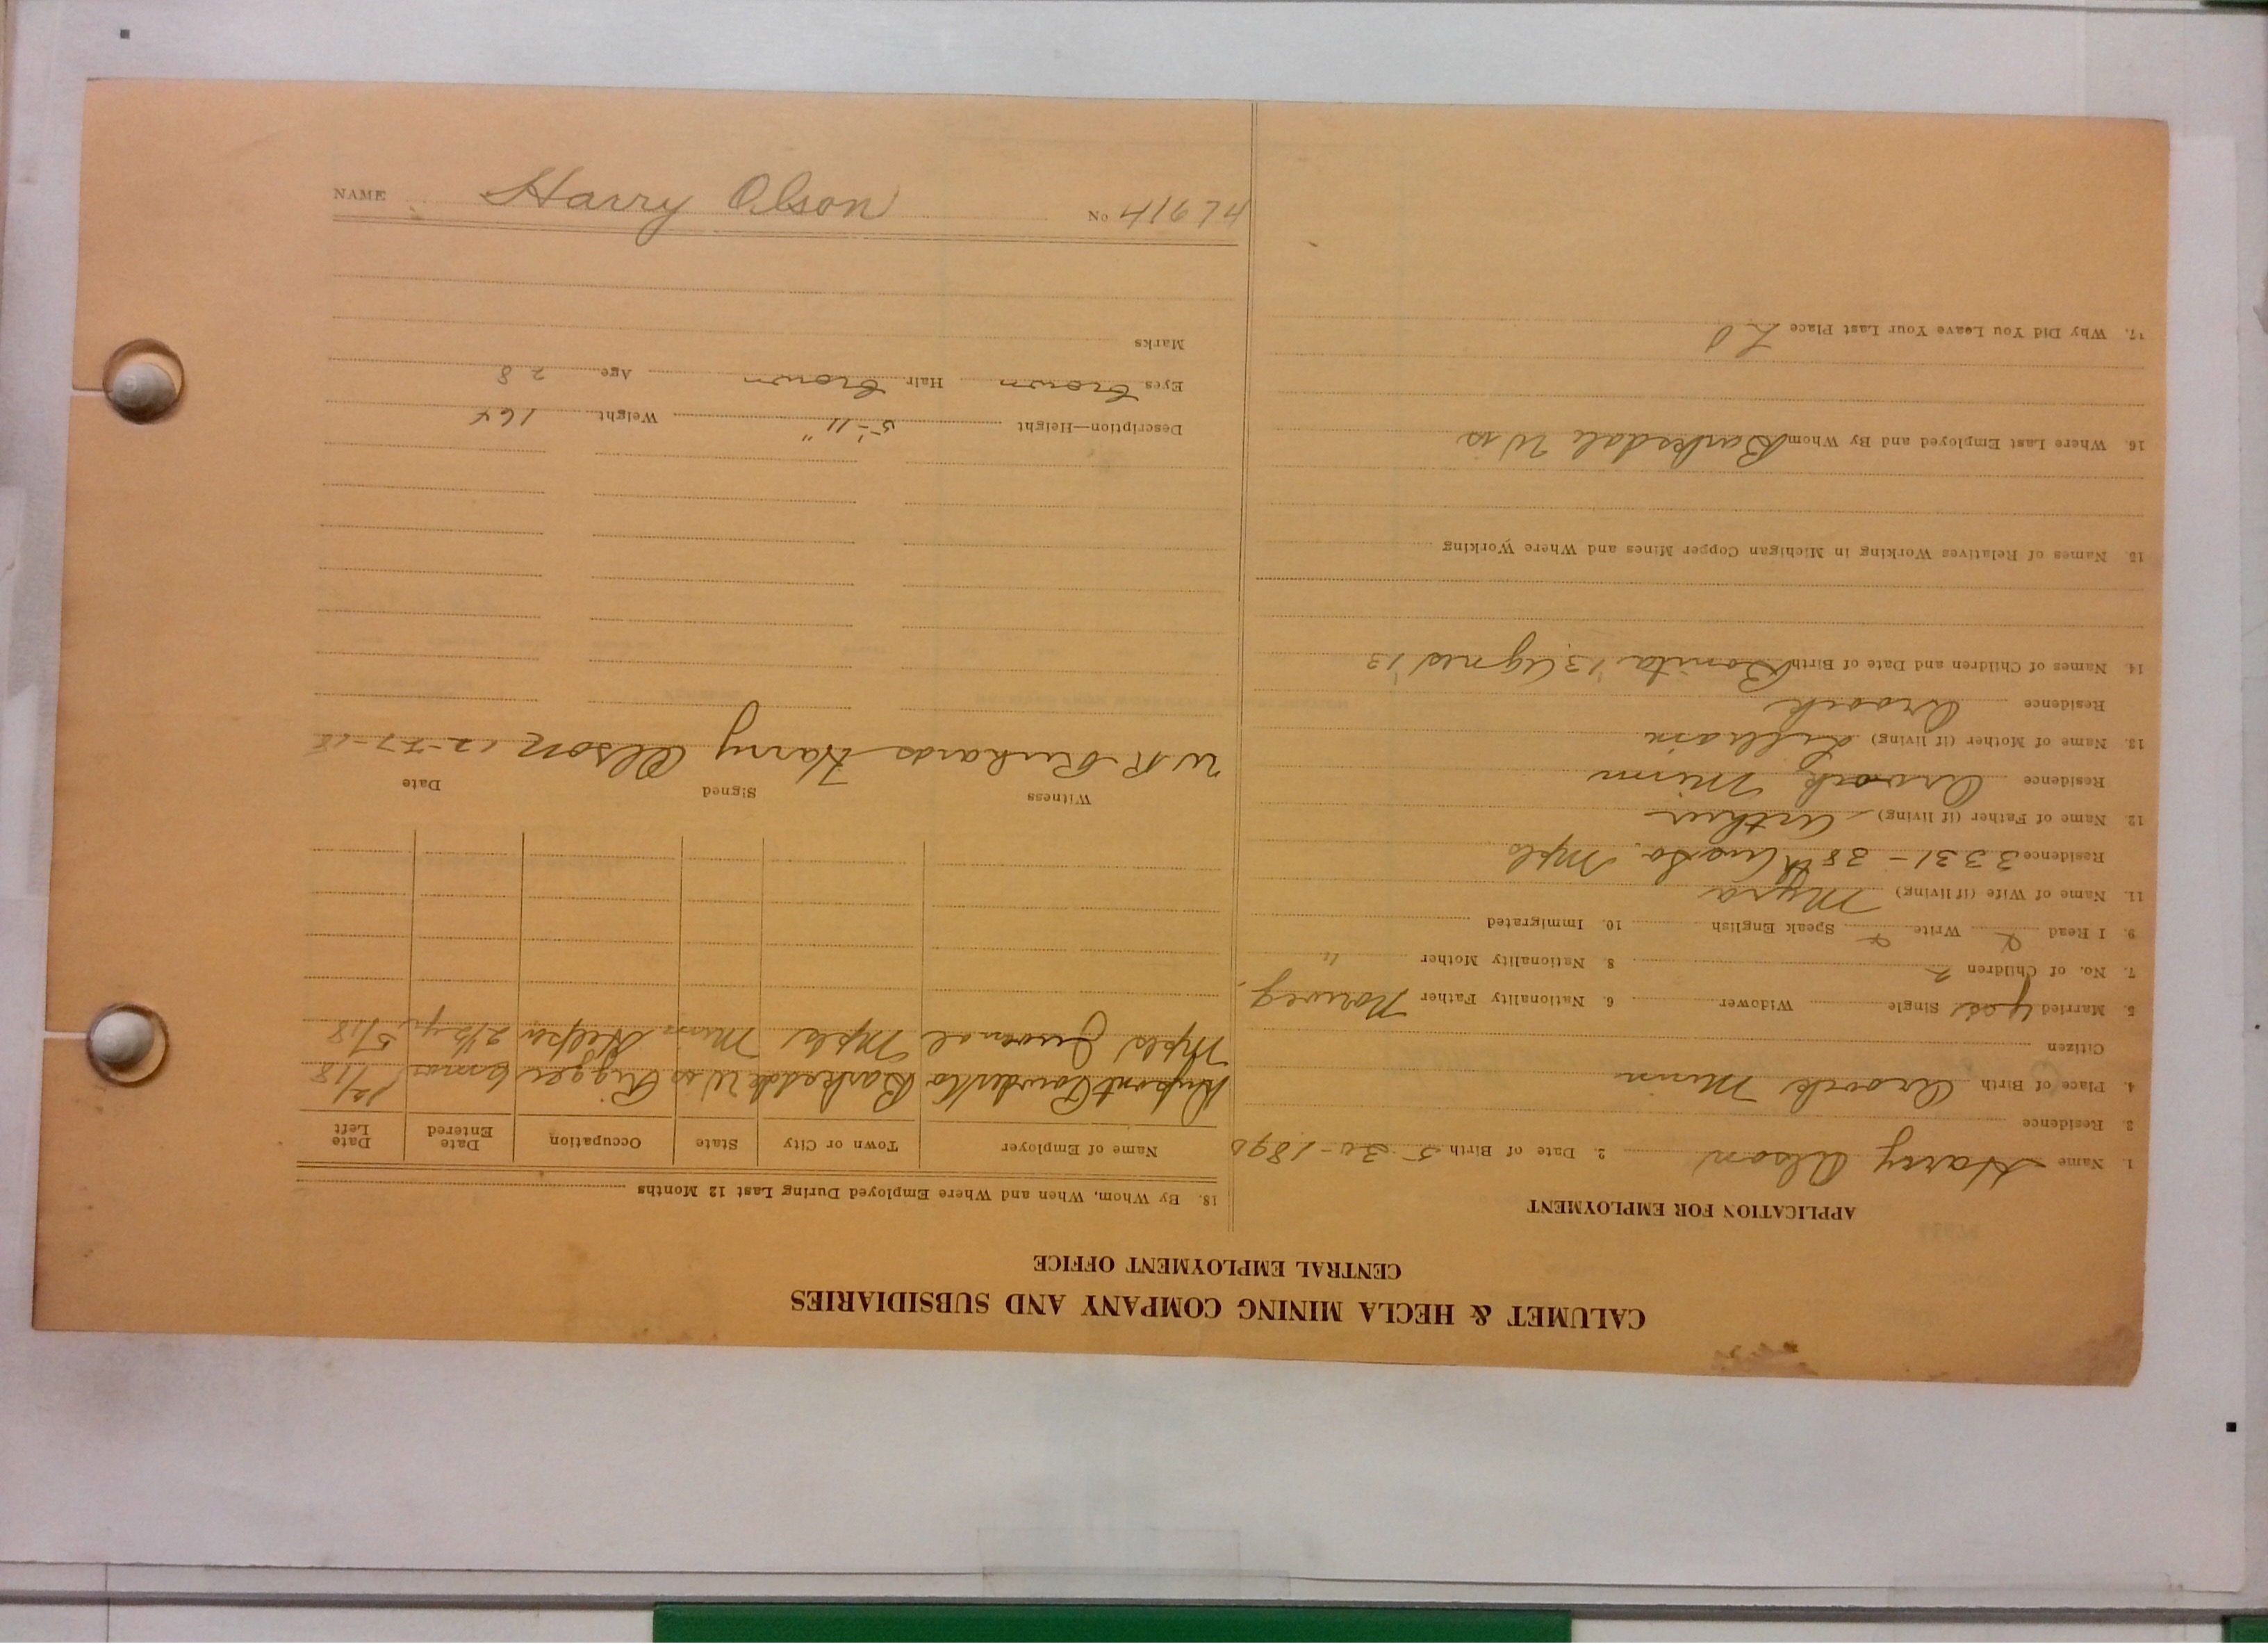 CALUMET & HECLA MINING COMPANY AND SUBSIDIARIES
CENTRAL EMPLOYMENT OFFICE
APPLICATION FOR EMPLOYMENT
1. Name Harry Olson 2. Date of Birth 5-30-1890
3. Residence
4. Place of Birth Minn
Citizen
5. Married yes Single Widower 6. Nationality Father Norweg.
7. No. of Children 2 8. Nationality Mother "
9. I Read Write Speak English 10. Immigrated
11. Name of Wife (if living) Myra
Residence 3331-38th Ave So. Mpls
12. Name of Father (if living) Arthur
Residence Minn
13. Name of Mother (if living)
Residence
14. Names of Children and Date of Birth Bonita '13 Agnes '13
15. Names of Relatives Working in Michigan Copper Mines and Where Working
16. Where Last Employed and By Whom Barksdale Wis
17. Why Did You Leave Your Last Place
18. By Whom, When and Where Employed During Last 12 Months
Name of Employer Town or City State Occupation Date Entered Date Left
Dupont Powder Co Barksdale Wis Rigger 6 mos 12/18
Mpls Journal Mpls Minn Helper 2 1/2 yrs 5/18
Witness Signed Date
W R Richards Harry Olson 12-27-18
Description—Height 5'-11" Weight 164
Eyes brown Hair brown Age 28
Marks
NAME Harry Olson No 41674